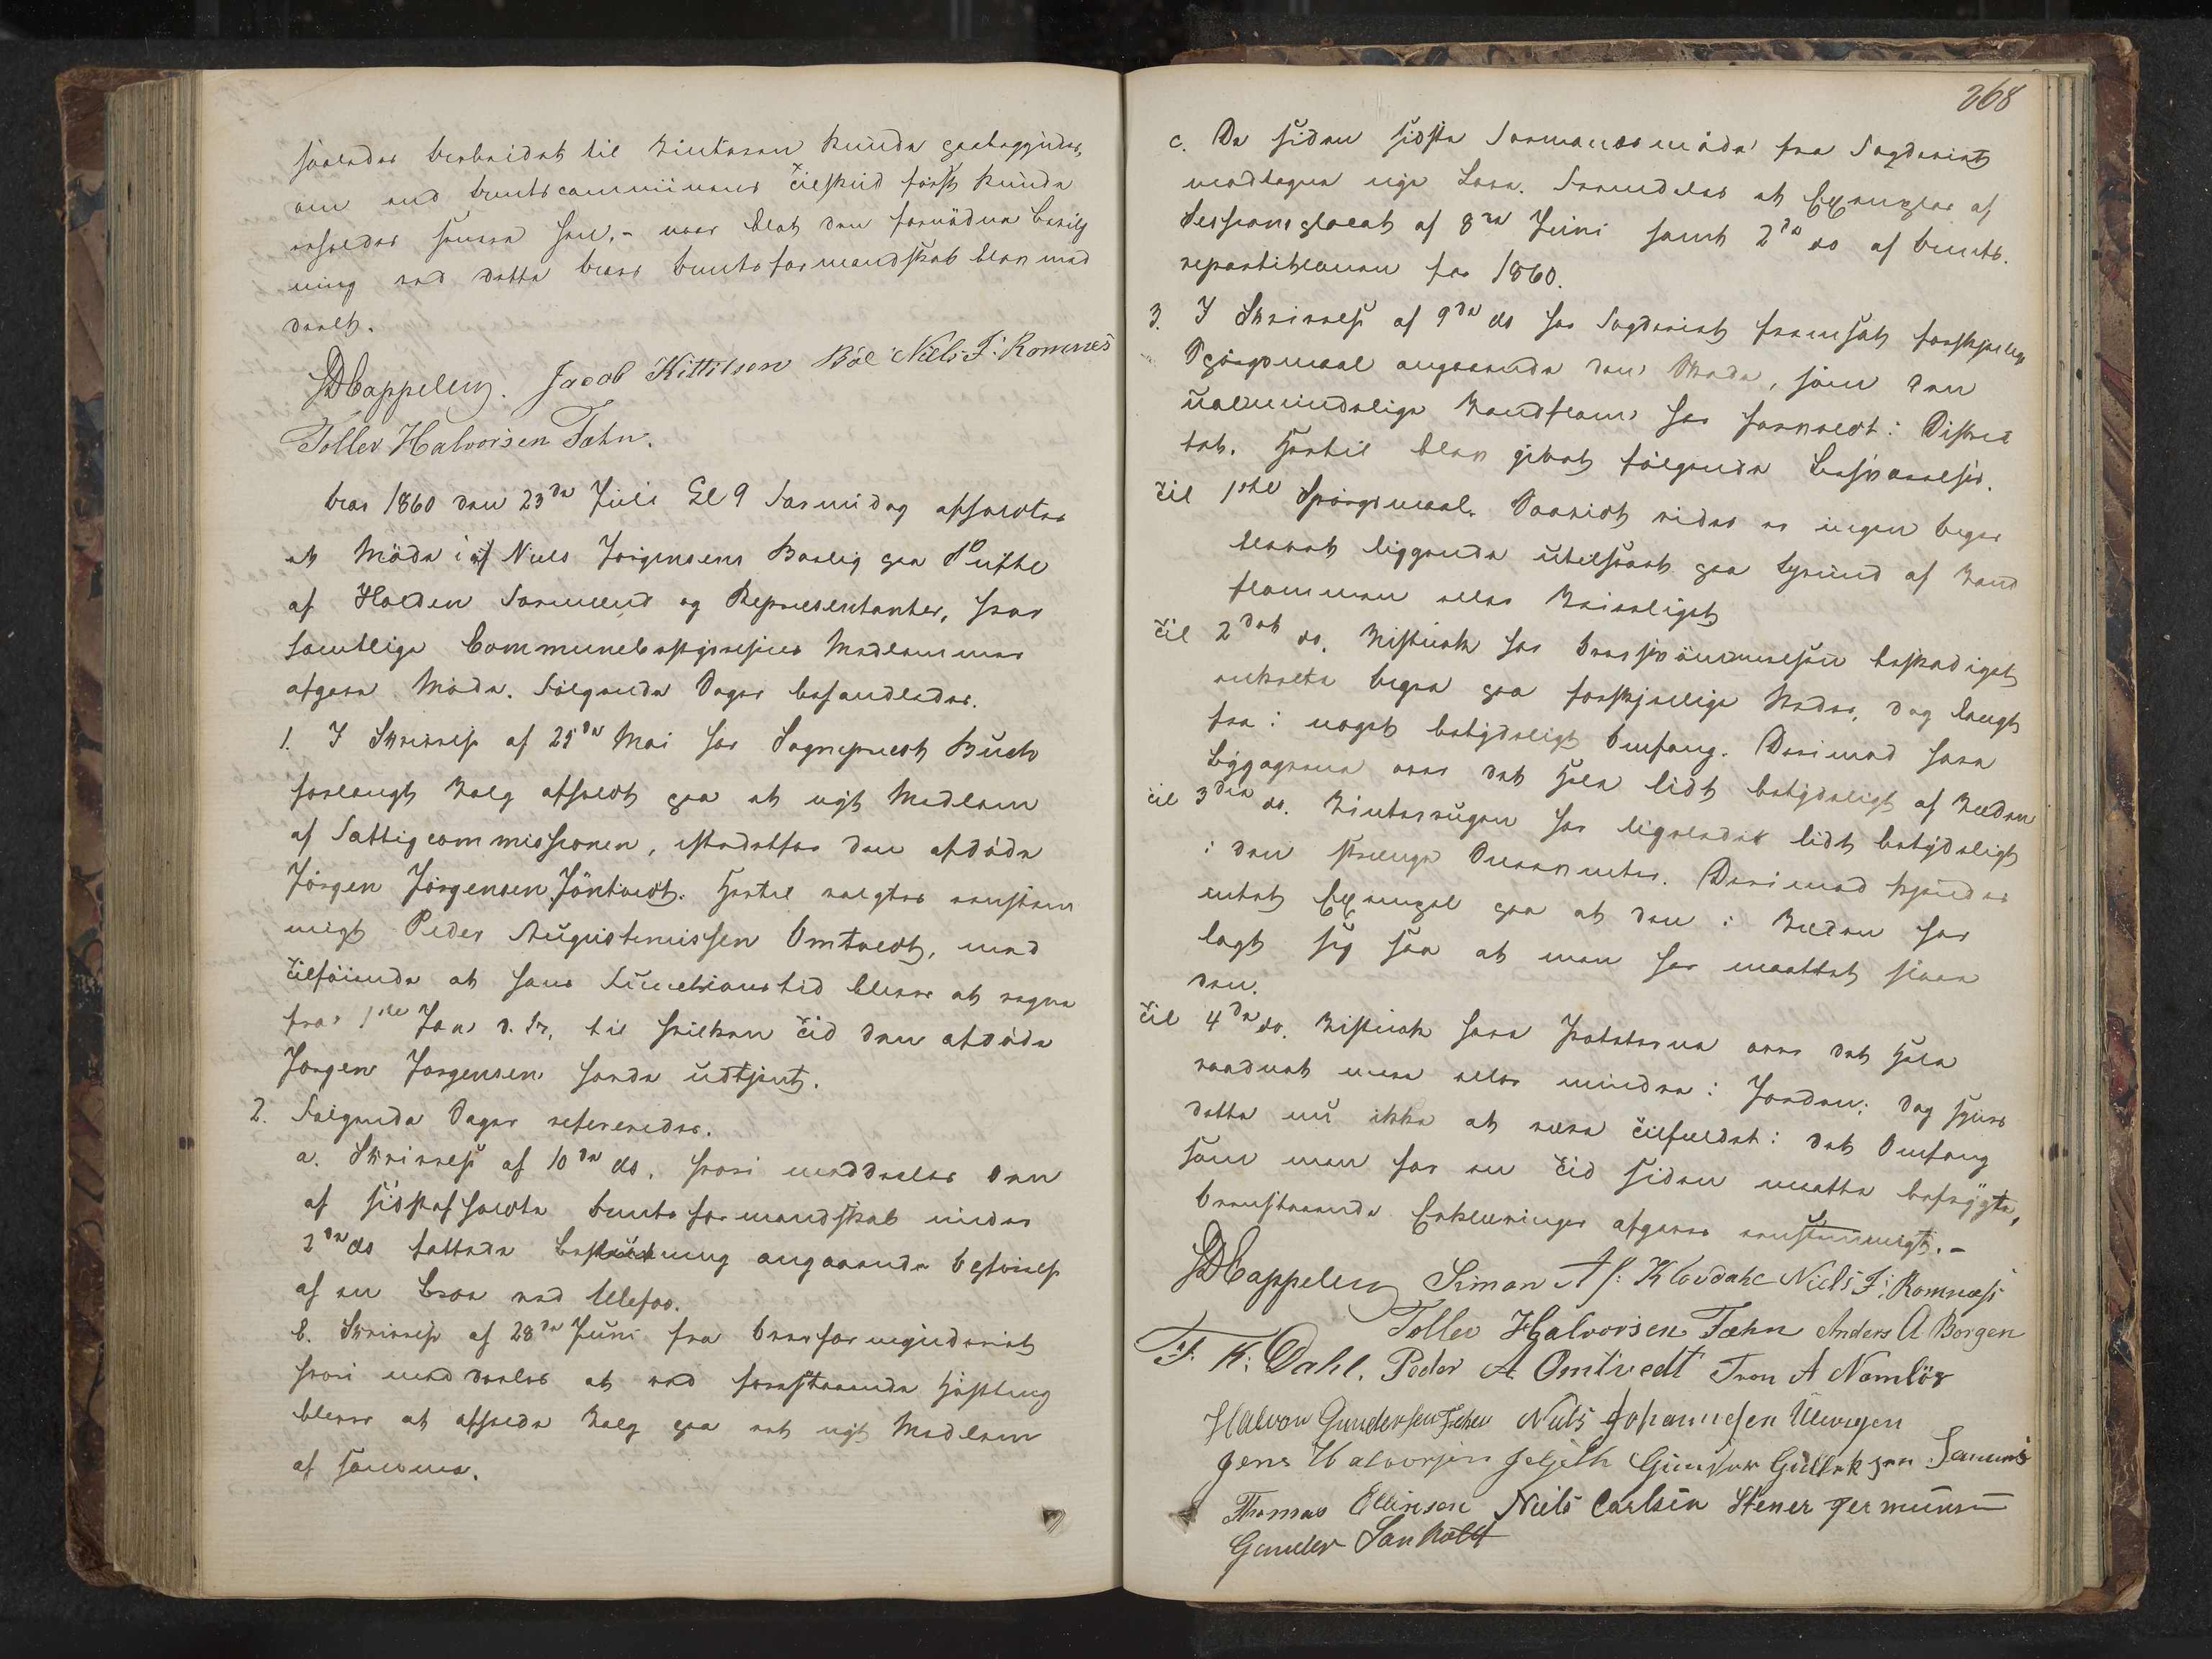 saaledes bearbeidet til Vinteren kunde paabegyndes,
om end Amtscommunens Tilskud først kunde
erholdes senere hen, – naar blot den fornødne Bevilg
ning ved dette Aars Amtsformandskab blev med
deelt.
DCappelen. Jacob Kittilsen Bøe Niels F: Romnes
Tollev Halvorsen Tæhn.
Aar 1860 den 23de Juli Kl 9 Formidag afholdtes
et Møde i Niels Jørgensens Bolig paa Pufte
af Holden Formend og Representanter, hvor
samtlige Communebestyrelsens Medlemmer
afgave Møde. Følgende Sager behandledes.
1. I Skrivelse af 25de Mai har Sognepræst Buch
forlangt Valg afholdt paa et nyt Medlem
af Fattigcommissionen, istedetfor den afdøde
Jørgen Jørgensen Jøntvedt. Hertil valgtes eenstem
migt Peder Augustinussen Omtvedt, med
Tilføiende at hans Functionstid bliver at regne
fra 1ste Jan d. Ar, til hvilken Tid den afdøde
Jørgen Jørgensen havde udtjent.
2. Følgende Sager refereredes.
a. Skrivelse af 10de ds. hvori meddeeles den
af sidstafholdte Amtsformandskab under
2den ds fattede Beslutning angaaende Opførelse
af en Broe ved Ulefos.
b. Skrivelse af 28de Juni fra Overformynderiet
hvori meddeeles at ved forestaaende Høstting
bliver at afholde Valg paa et nyt Medlem
af samme.
268
c. Da siden sidste Formandsmøde fra Fogderiet
modtagne nye Love. Fremdeles et Exemplar af
Sessionsplacat af 8de Juni samt 2de do af Amts.
repartitionen for 1860.
3. I Skrivelse af 9de ds har Fogderiet fremsat forskjellige
Spørgsmaal angaaende den Skade, som den
ualmindelige Vandflom har forvoldt i Distric
tet. Hertil blev givet følgende Besvarelse.
Til 1ste Spørgsmaal. Saavidt vides er ingen Ager
blevet liggende utilsaaet paa Grund af Vand
flommen eller Veirliget
Til 2det do. Vistnok har Oversvømmelsen beskadiget
enkelte Agre paa forskjellige Steder, dog langt
fra i noget betydeligt Omfang. Derimod have
Bygagrene over det Hele lidt betydeligt af Væden
Til 3die do. Vinterrugen har ligeledes lidt betydeligt
i den strenge Vinter. Derimod kjendes
intet Exempel paa at den i Væden har
lagt sig saa at man har maattet slaae
den.
Til 4de do. Vistnok have Poteterne over det Hele
raadnet mere eller mindre i Jorden; dog synes
dette nu ikke at være Tilfældet i det Omfang
som man for en Tid siden maatte befrygte,
Ovenstaaende Erklæringer afgaves eenstemmigt. –
DCappelen Simon Af: Klovdahl Niels F: Romnæs
Tollev Halvorsen Tæhn Anders A Borgen
F. K: Dahl. Peder A. Omtvedt Tron A Namløs
Halvor Gundersen Niels Johannesen Ulevigen
Jens Halvorsen Gunder Gulleksen
Thomas Ellinsen Niels Carlsen Stener Germunsen
Gunder Landkaas